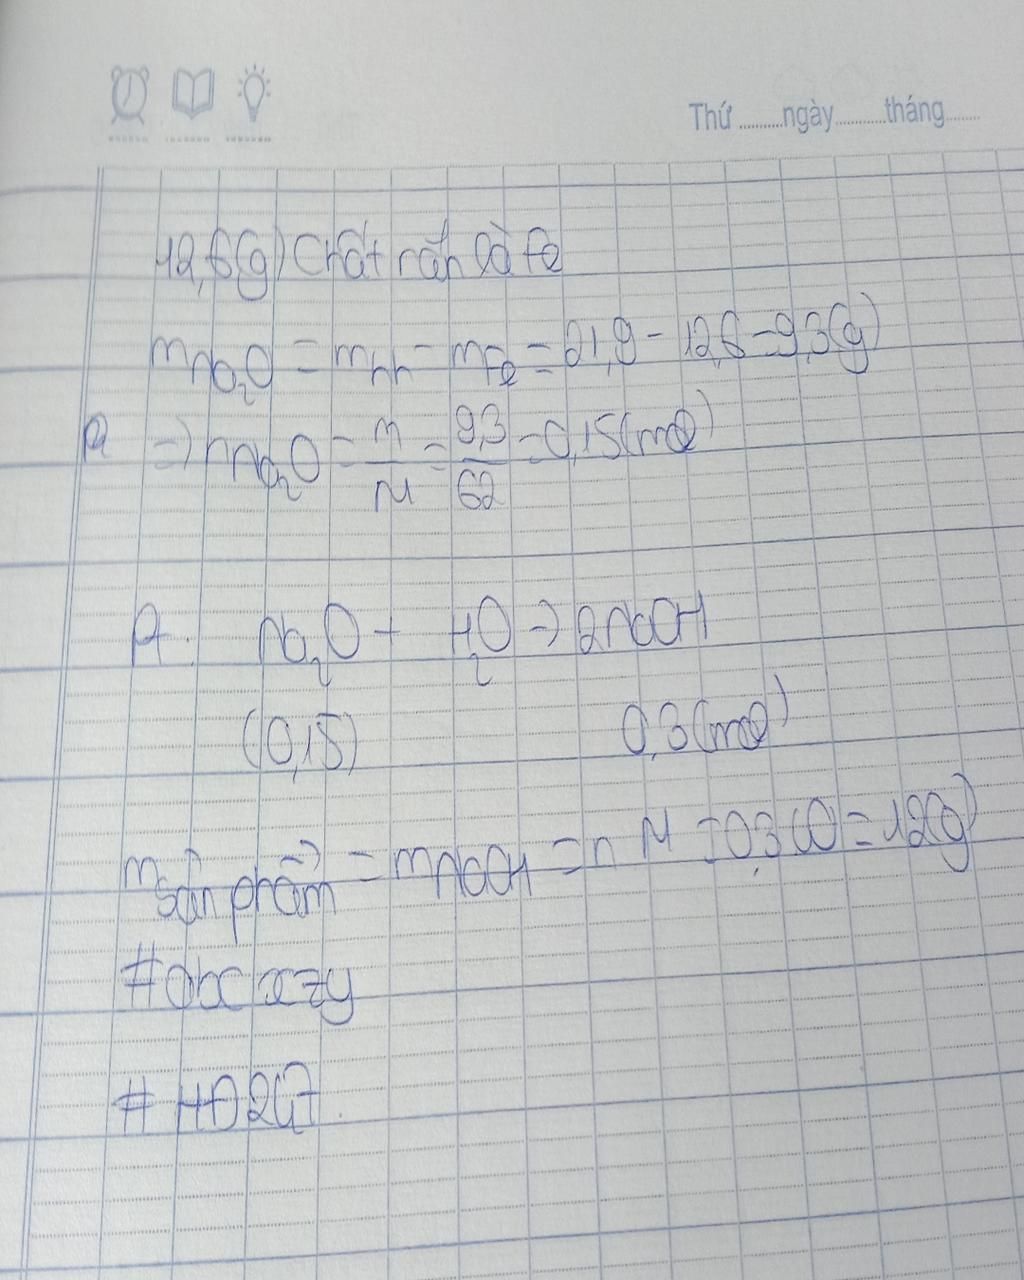 Thứ.........ngày..........tháng.......
12,6(g) Chất rắn là Fe
mNa₂O = mhh - mFe = 21,9 - 12,6 = 9,3(g)
=> nNa₂O = m/M = 9,3/62 = 0,15(mol)
A. Na₂O + H₂O → 2NaOH
(0,15) 0,3(mol)
m sản phẩm = mNaOH = n M = 0,3 40 = 12(g)
#abcxzy
# HD247